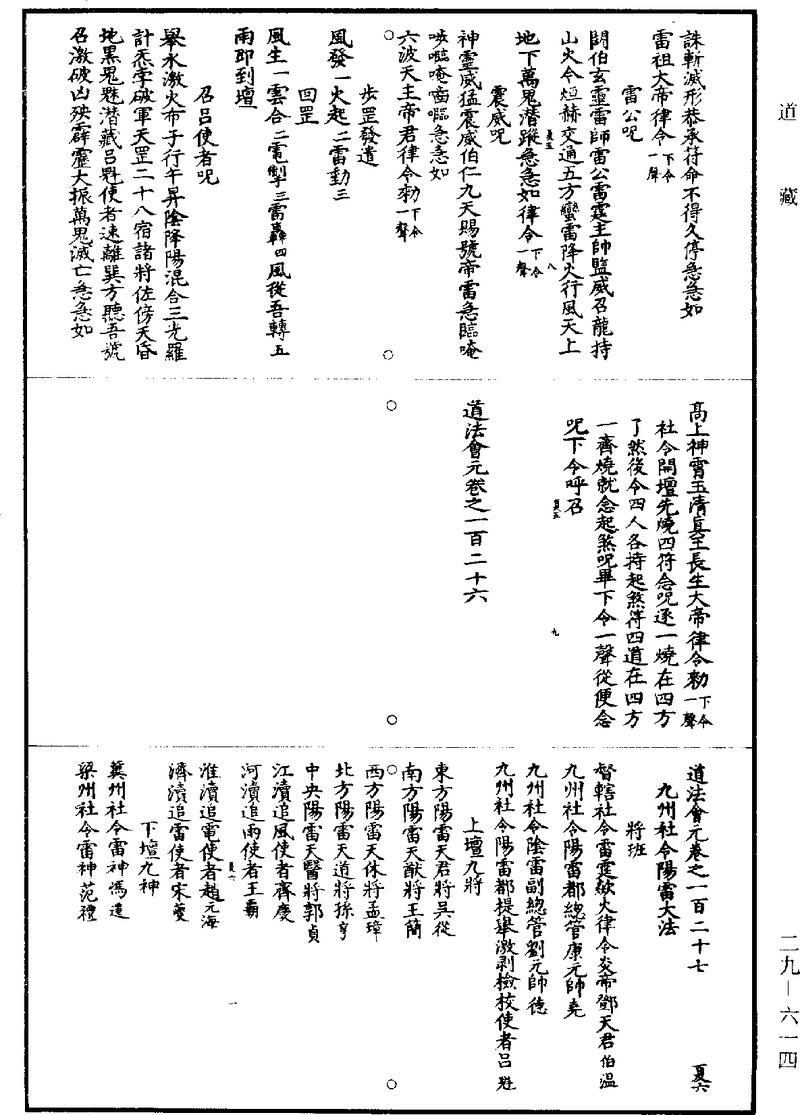 道藏
誅斬滅形恭承符命不得久停急急如
雷祖大帝律令下令一聲
雷公呪
閼伯玄靈雷師雷公雷霆主帥監威召龍持
山火令烜赫交通五方蠻雷降火行風天上
地下萬鬼潛蹤急急如律令下令一聲
夏五
八
震威呪
神靈威猛震威伯仁九天賜號帝雷急臨唵
六波天主帝君律令勑下令一聲
步罡發遣
風發一火起二雷動三
回罡
風生一雲合二電掣三雷轟四風從吾轉五
雨即到壇
召呂使者呪
舉水激火布子行午昇陰降陽混合三光羅
計炁孛破軍天罡二十八宿諸將佐傍天昏
地黑鬼魅潛藏呂魁使者速離巽方聽吾號
召激破凶殃霹靂大振萬鬼滅亡急急如
高上神霄玉清真王長生大帝律令勑下令一聲
社令開壇先燒四符念呪逐一燒在四方
了然後令四人各持起煞符四道在四方
一齊燒就念起煞呪畢下令一聲從便念
呪下令呼召
夏五
九
道法會元卷之一百二十六
道法會元卷之一百二十七
夏六
九州社令陽雷大法
將班
督轄社令雷霆歘火律令炎帝鄧天君伯溫
九州社令陽雷都總管康元帥堯
九州社令陰雷副總管劉元帥德
九州社令陽雷都提舉激剥檢校使者呂魁
上壇九將
東方陽雷天君將吳從
南方陽雷天猷將王簡
西方陽雷天休將孟璋
北方陽雷天道將孫亨
中央陽雷天醫將郭貞
江瀆追風使者齊慶
河瀆追雨使者王霸
夏六
一
淮瀆追電使者趙元海
濟瀆追雷使者宋蔓
下壇九神
冀州社令雷神馮遷
梁州社令雷神范禮
二九—六一四